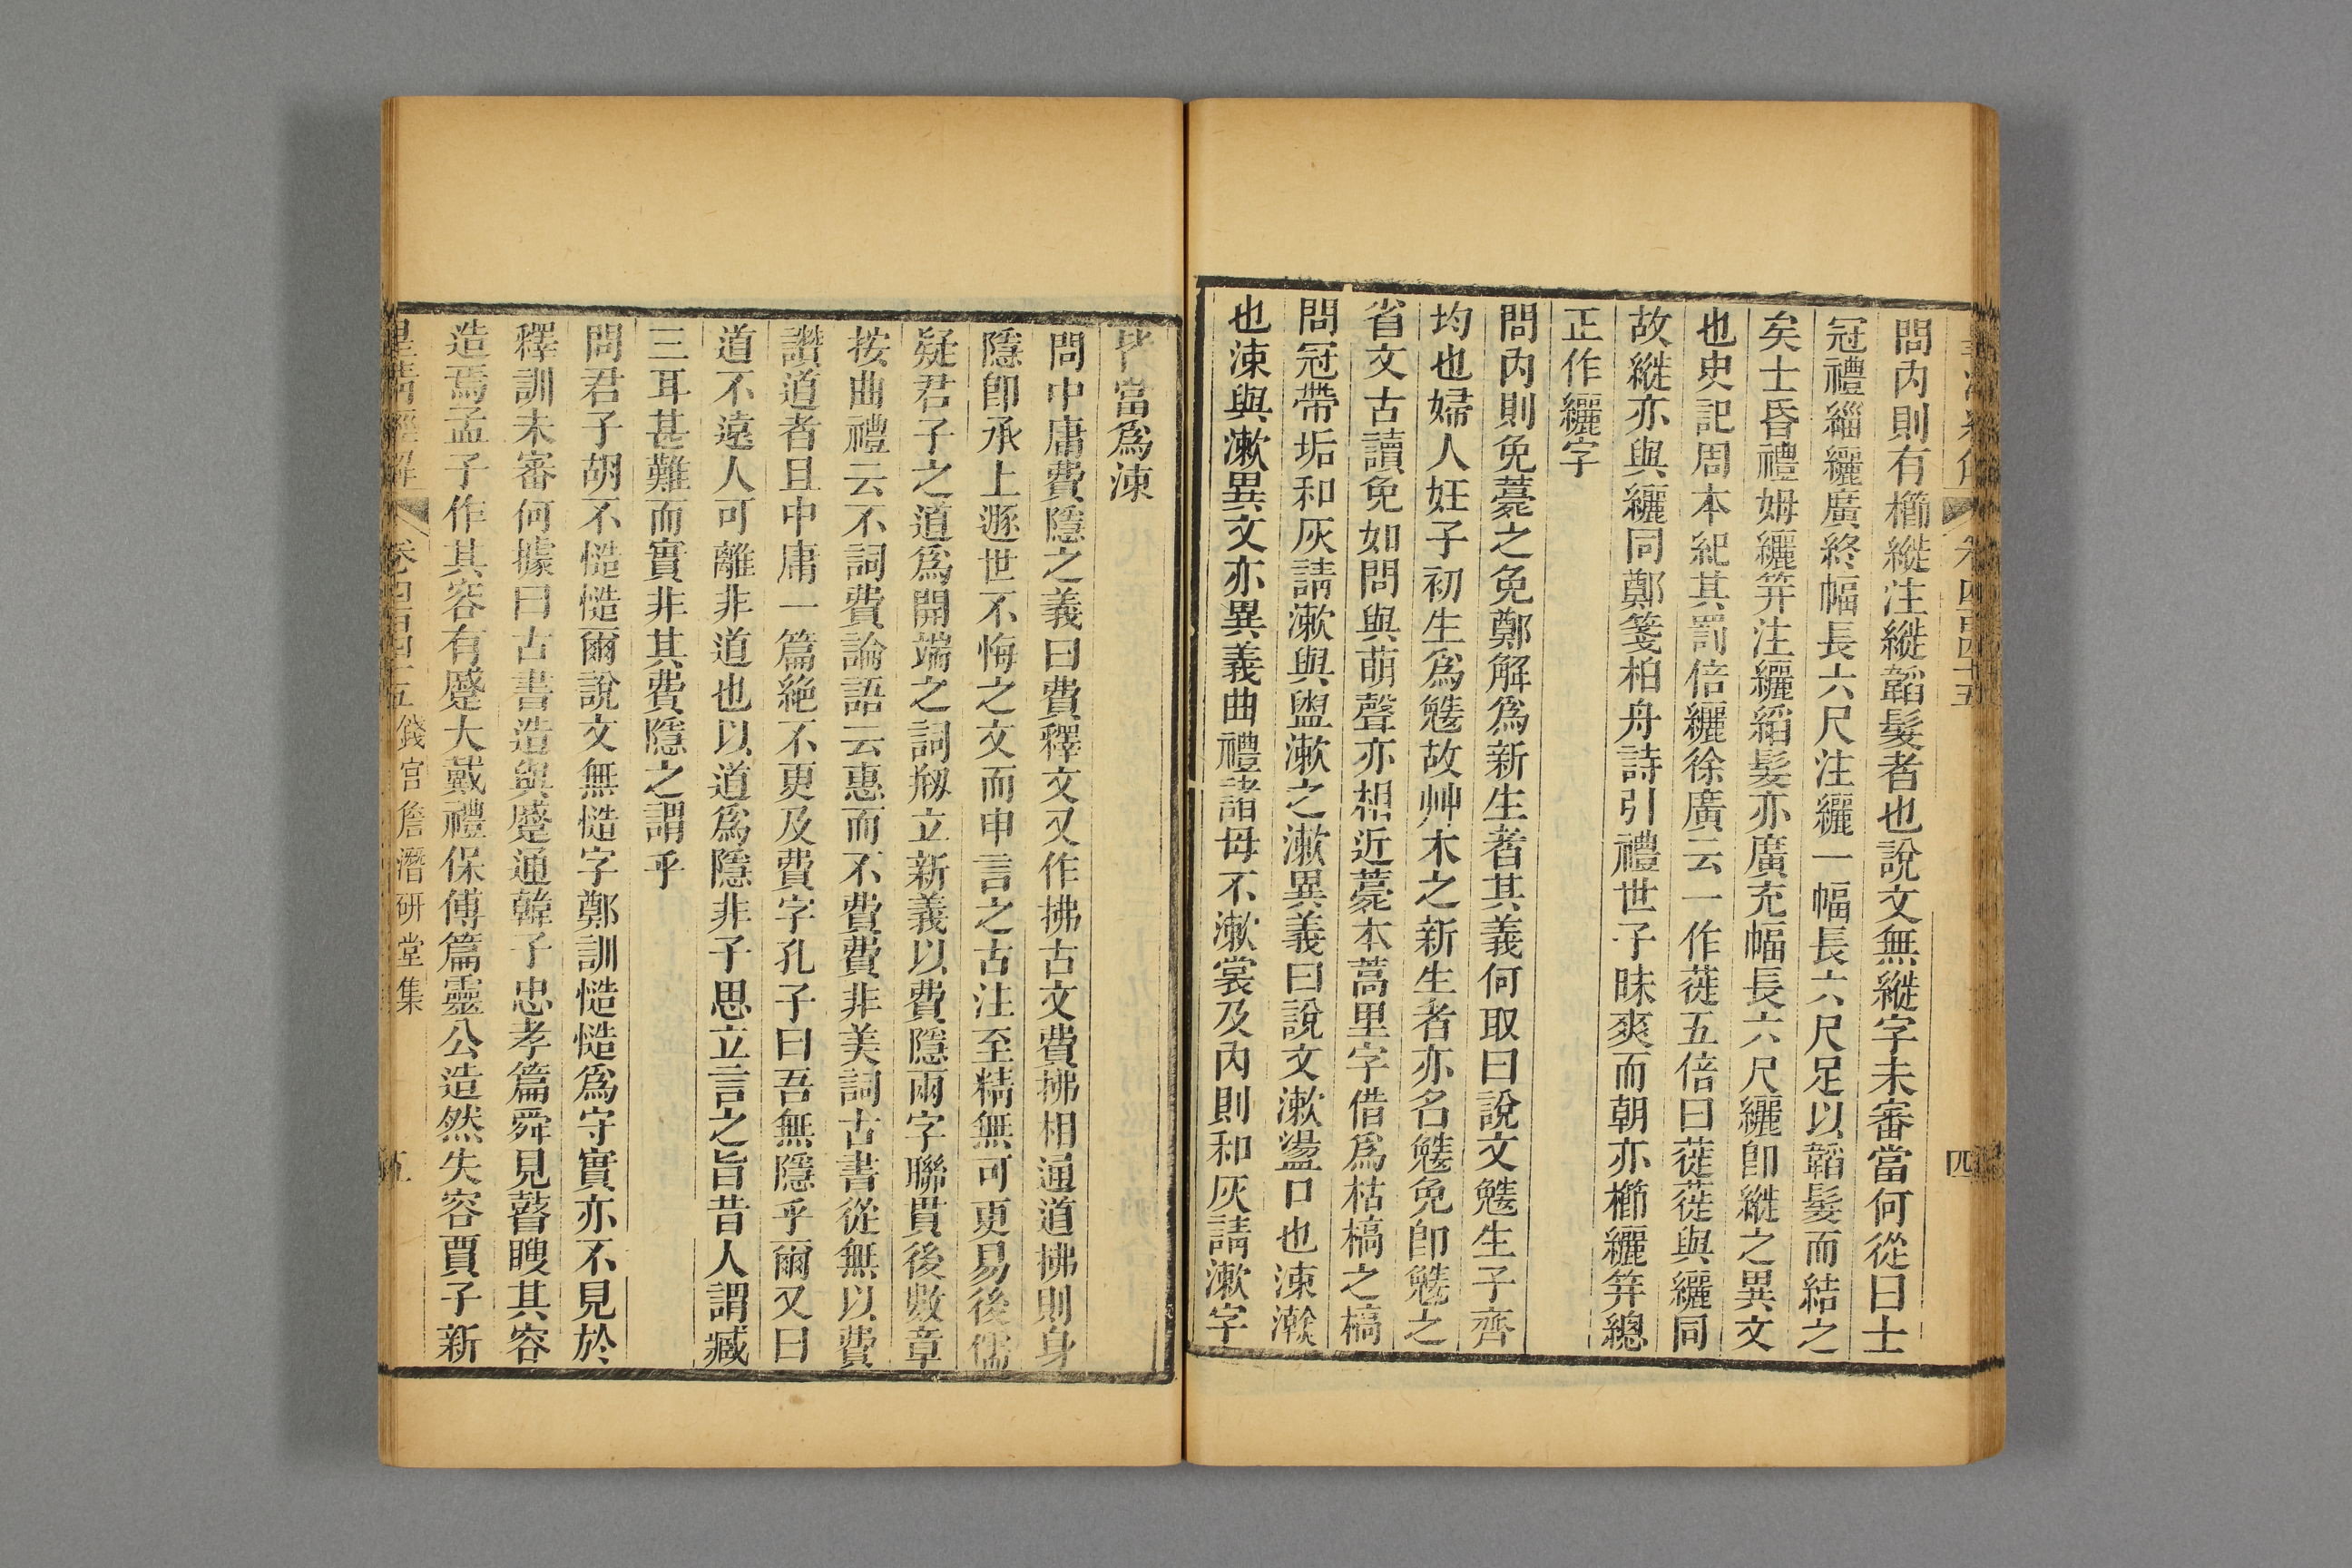 卷四百四十五
四
問內則有櫛縰注縰韜髮者也說文無縰字未審當何從曰士
冠禮緇纚廣終幅長六尺注纚一幅長六尺足以韜髮而結之
矣士昏禮姆纚笄注纚縚髮亦廣充幅長六尺纚卽縰之異文
也史記周本紀其罰倍纚徐廣云一作蓰五倍曰蓰蓰與纚同
故縰亦與纚同鄭箋柏舟詩引禮世子昧爽而朝亦櫛纚笄總
正作纚字
問內則免薧之免鄭解爲新生者其義何取曰說文㝃生子齊
均也婦人妊子初生爲㝃故艸木之新生者亦名㝃免卽㝃之
省文古讀免如問與萌聲亦相近薧本蒿里字借爲枯槁之槁
問冠帶垢和灰請漱與盥漱之漱異義曰說文漱盪口也涑瀚
也涑與漱異文亦異義曲禮諸母不漱裳及內則和灰請漱字
皆當爲涑
問中庸費隱之義曰費釋文又作拂古文費拂相通道拂則身
隱卽承上遯世不悔之文而申言之古注至精無可更易後儒
疑君子之道爲開端之詞剏立新義以費隱兩字聯貫後數章
按曲禮云不詞費論語云惠而不費費非美詞古書從無以費
讚道者且中庸一篇絶不更及費字孔子曰吾無隱乎爾又曰
道不遠人可離非道也以道爲隱非子思立言之旨昔人謂臧
三耳甚難而實非其費隱之謂乎
問君子胡不慥慥爾說文無慥字鄭訓慥慥爲守實亦不見於
釋訓未審何據曰古書造與蹙通韓子忠孝篇舜見瞽瞍其容
造焉孟子作其容有蹙大戴禮保傅篇靈公造然失容賈子新
皇清經解
卷四百四十五
錢宮詹潛研堂集
五